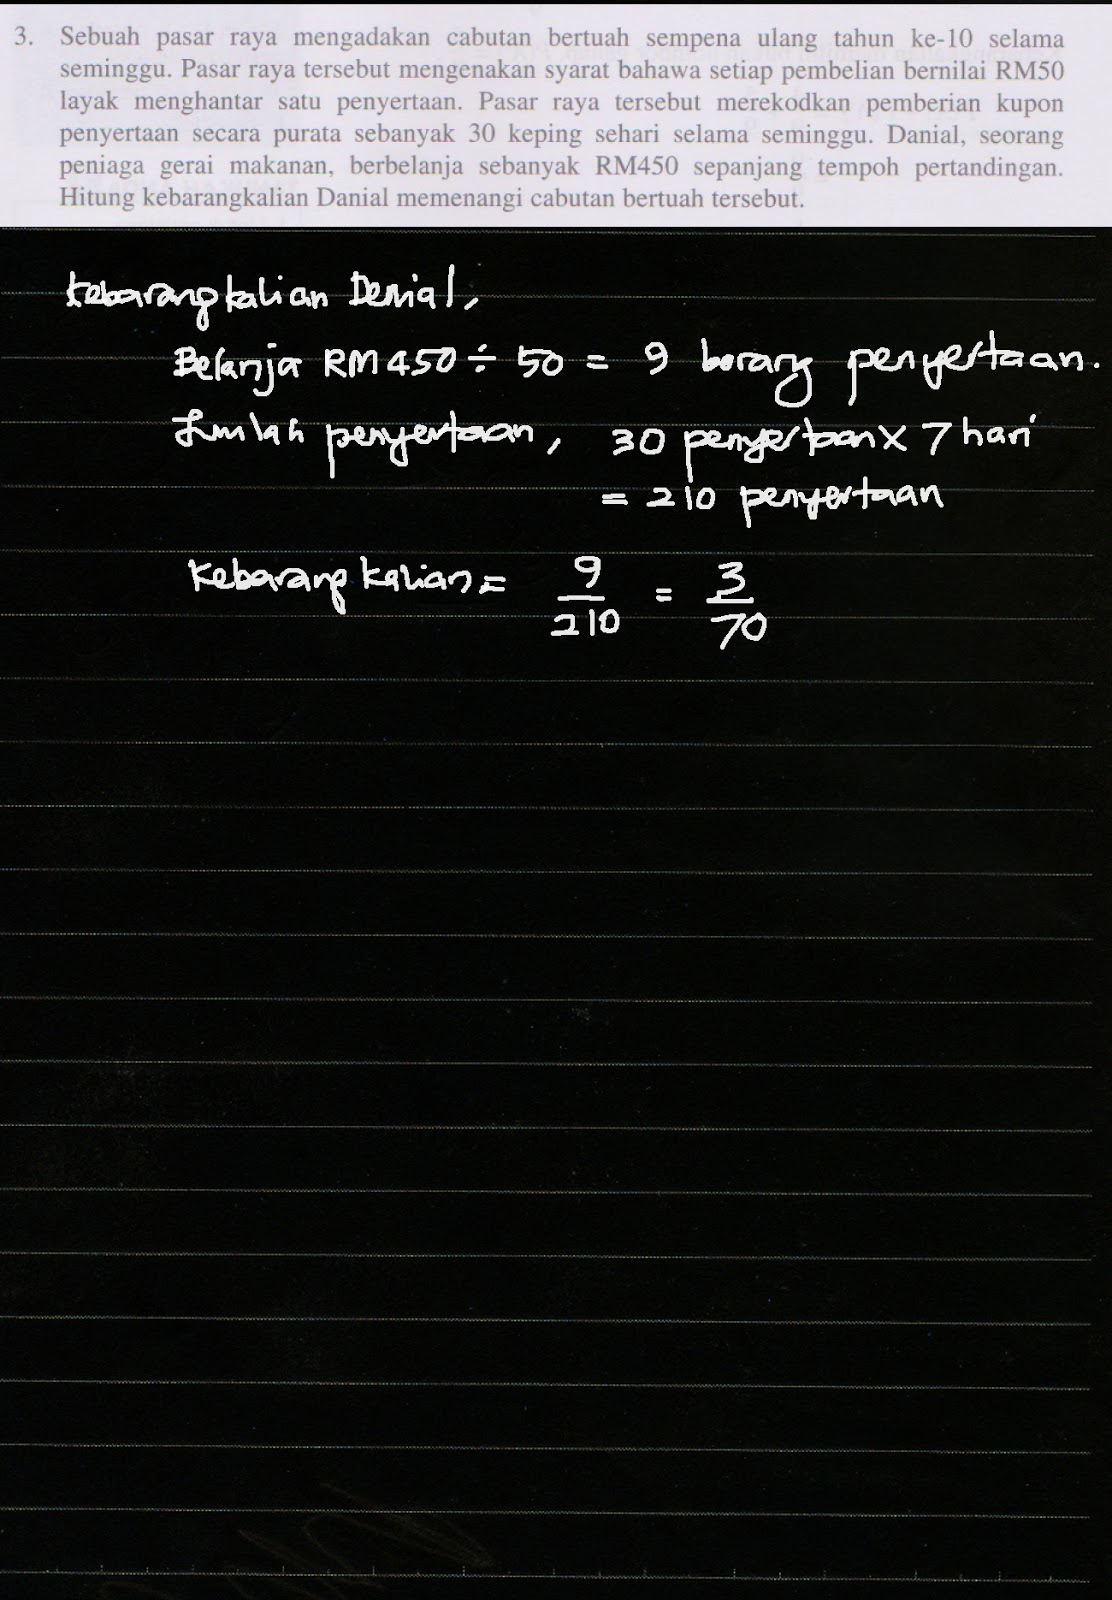 3. Sebuah pasar raya mengadakan cabutan bertuah sempena ulang tahun ke-10 selama
seminggu. Pasar raya tersebut mengenakan syarat bahawa setiap pembelian bernilai RM50
layak menghantar satu penyertaan. Pasar raya tersebut merekodkan pemberian kupon
penyertaan secara purata sebanyak 30 keping sehari selama seminggu. Danial, seorang
peniaga gerai makanan, berbelanja sebanyak RM450 sepanjang tempoh pertandingan.
Hitung kebarangkalian Danial memenangi cabutan bertuah tersebut.
Kebarangkalian Denial,
Belanja RM 450 ÷ 50 = 9 borang penyertaan.
Jumlah penyertaan, 30 penyertaan × 7 hari
= 210 penyertaan
Kebarangkalian = 9/210 = 3/70